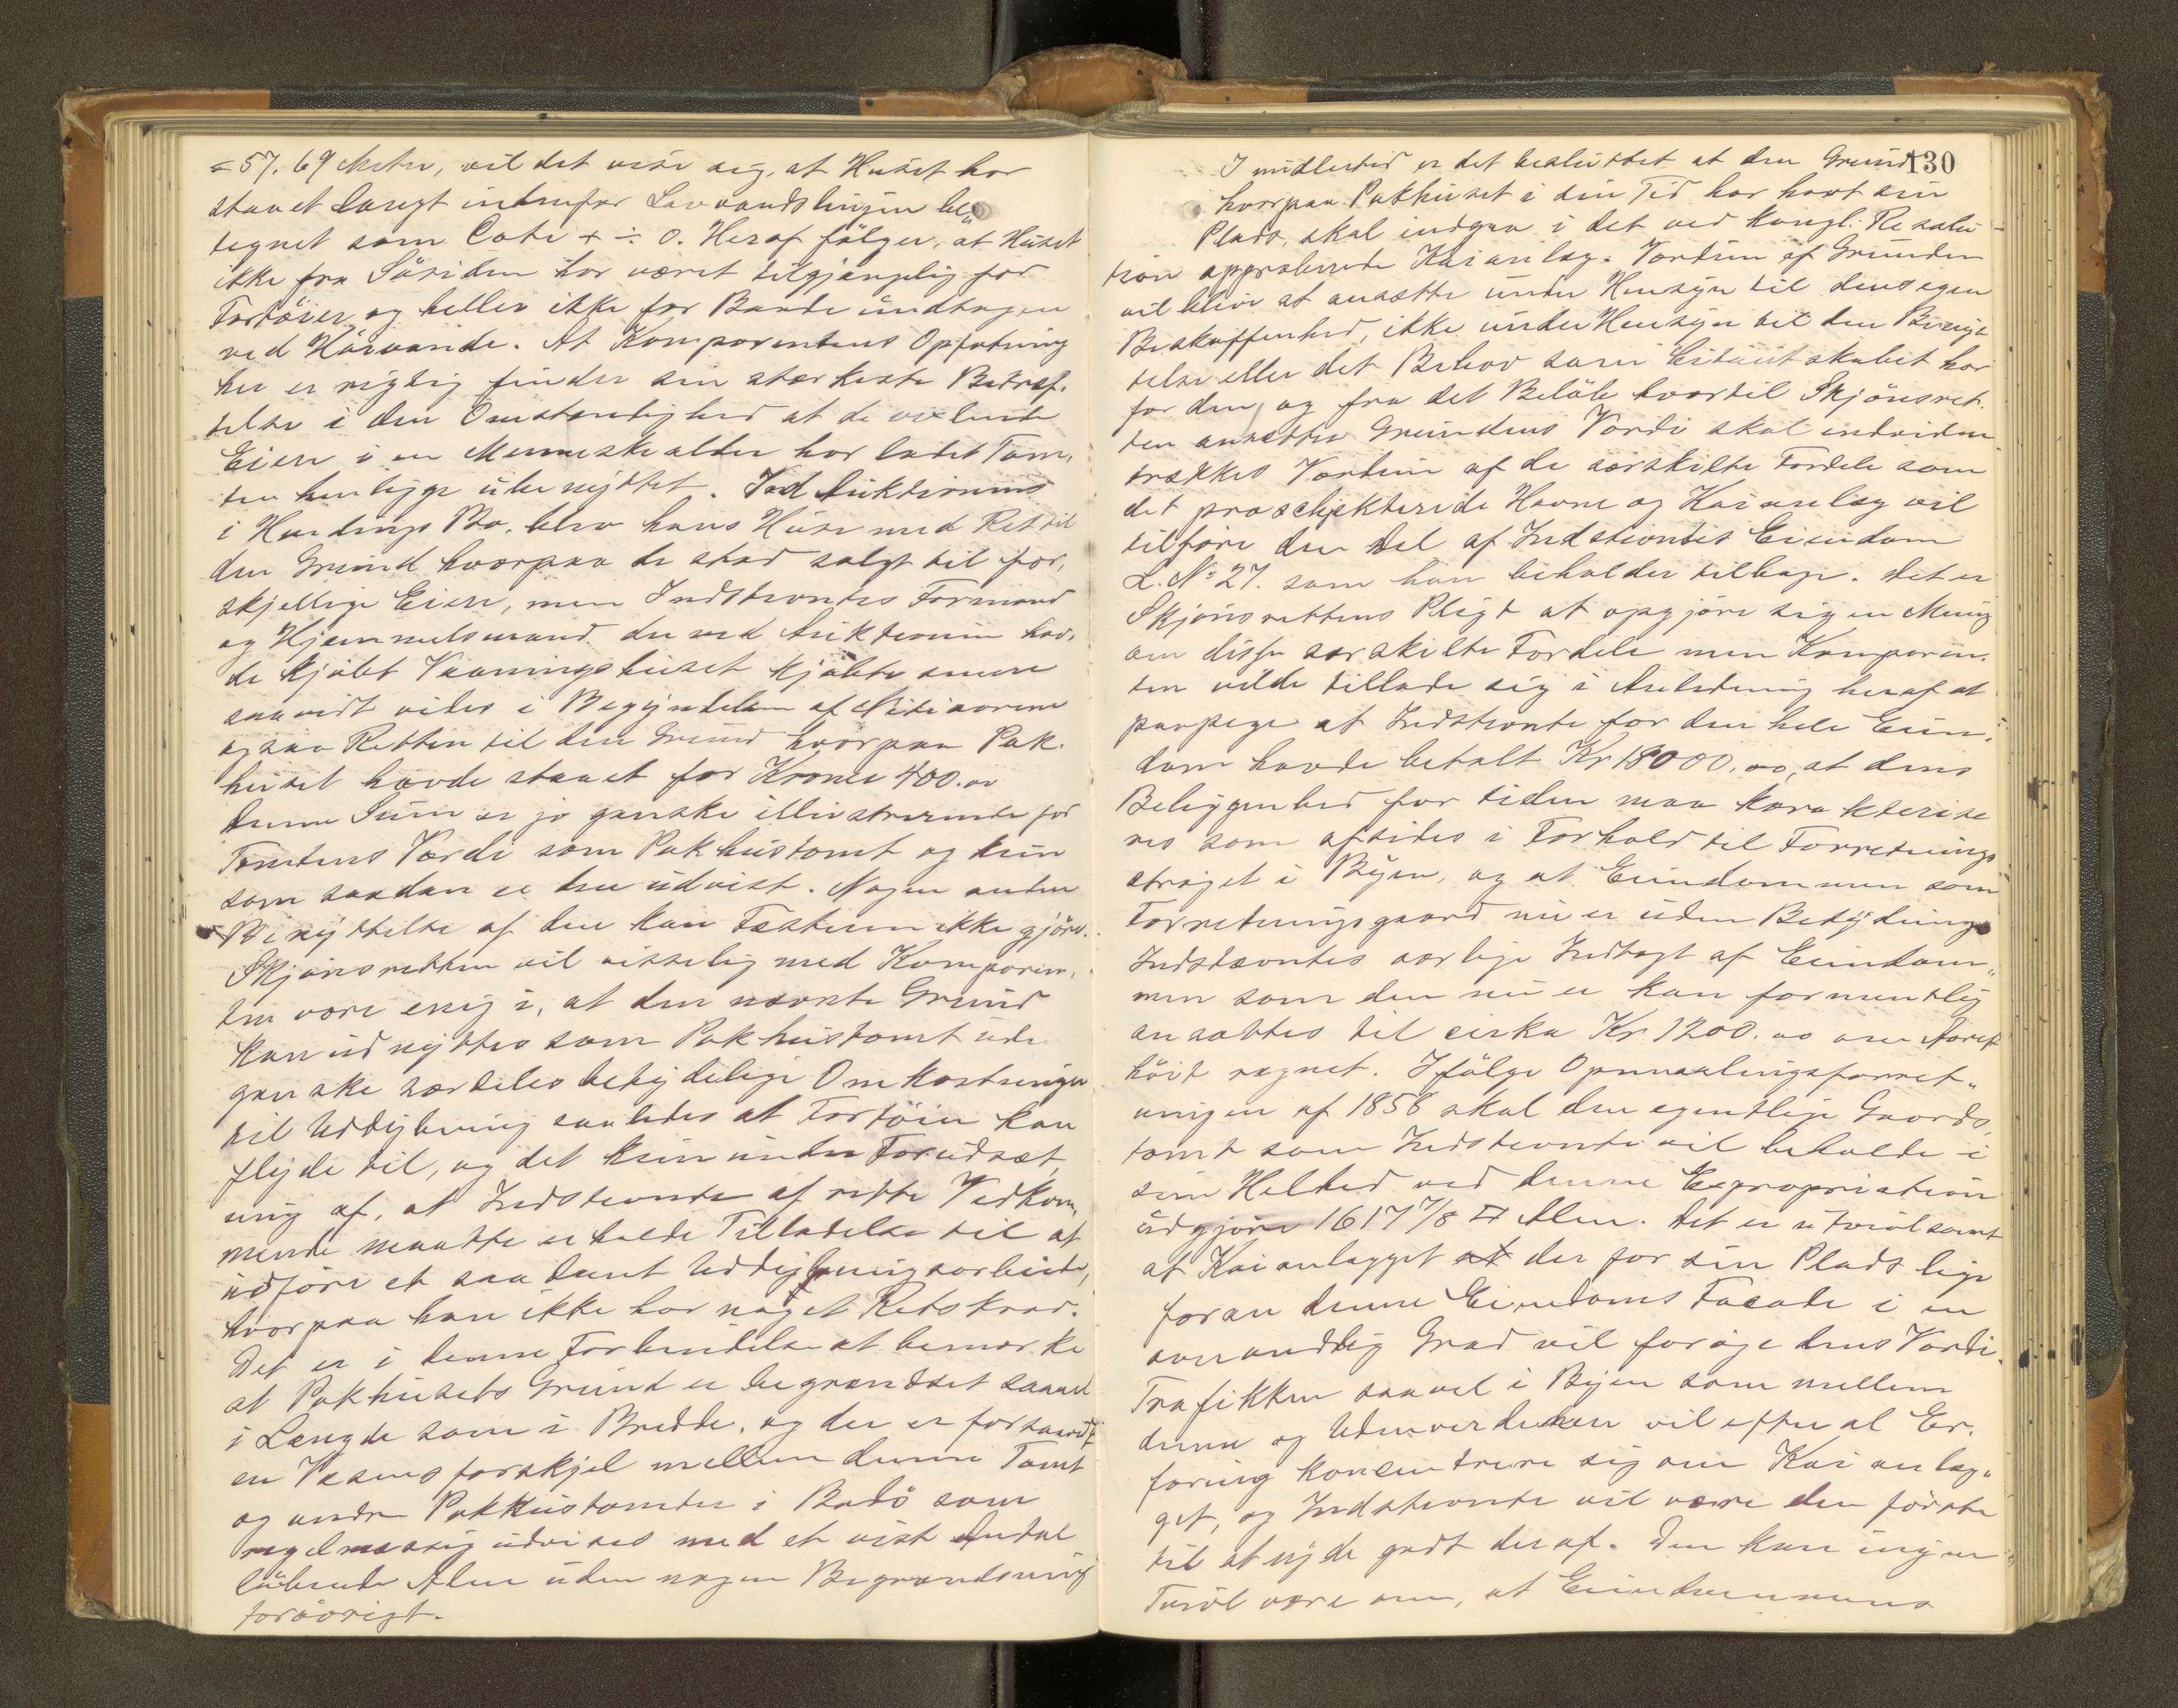 = 57.69 Meter, vil det vise sig, at Huset har
staaet langt indenfor Lavvandslinjen be„
tegnet som Cote + ÷ 0. Heraf fölger, at Huset
ikke fra Sösiden har været tilgjængelig for
Fartöier og heller ikke for Baade undtagen
ved Höivande. At Komparentens Opfatning
her er rigtig finder sin stærkeste Bekræf-
telse i den Omstændighed at de vexlende
Eiere i en Menneskealder har ladet Tom-
ten henligge ubenyttet. Ved Auktionen
i Hardings Bo. blev hans Huse med Ret til
den Grund hvorpaa de stod solgt til for-
skjellige Eiere, men Indstevntes Formand
og Hjemmelsmand der ved Auktionen hav-
de kjöbt Vaaningshuset kjöbte senere
saavidt vides i Begyndelsen af Nitiaarene
ogsaa Retten til den Grund hvorpaa Pak-
huset havde staaet for Kroner 400.00
Denne Sum er jo ganske illustrerende for
Tomtens Værdi som Pakhustomt og kun
som saadan er den udvist. Nogen anden
Benyttelse af den kan Fæsteren ikke gjöre.
Skjönsretten vil visselig med Komparen-
ten være enig i, at den nævnte Grund
kan udnyttes som Pakhustomt uden
ganske særdeles betydelige Omkostninger
til Uddybning saaledes at Fartöier kan
flyde til, og det kun under Forudsæt-
ning af, at Indstevnte af rette Vedkom-
mende maatte erholde Tilladelse til at
udföre et saadant Uddybningsarbeide,
hvorpaa han ikke har noget Retskrav.
Det er i denne Forbindelse at bemærke
at Pakhusets Grund er begrændset saavel
i Længde som i Bredde, og der er forsaavidt
en Væsensforskjel mellem denne Tomt
og andre Pakhustomter i Bodö som
regelmæssig udvises med et vist Antal
löbende Alen uden nogen Begrændsning
forövrigt.
130
Imidlertid er det besluttet at den Grund
hvorpaa Pakhuset i sin Tid har havt sin
Plads, skal indgaa i det ved kongl. Resolu-
tion approberede Kaianlæg. Værdien af Grunden
vil blive at ansætte under Hensyn til dens egen
Beskaffenhed, ikke under Hensyn til den Benyt-
telse eller det Behov som Eidsivtskabet har
for den, og fra det Belöb hvortil Skjönsret-
ten ansætter Grundens Værdi skal endvidere
trækkes Værdien af de særskilte Fordele som
det proschjekterede Havne og Kaianlæg vil
tilföre den Del af Indstevntes Eiendom
L. No 27. som han beholder tilbage. Det er
Skjönsrettens Pligt at opgjöre sig en Mening
om disse særskilte Fordele men Komparen-
ten vilde tillade sig i Anledning heraf at
paapege at Indstevnte for den hele Eien-
dom havde betalt Kr 18000,00, at dens
Beliggenhed for tiden maa karakterise
res som afsides i Forhold til Forretnings
ströget i Byen, og at Eiendommen som
Forretningsgaard nu er uden Betydning
Indstævntes aarlige Indtægt af Eiendom„
men som den nu er kan formentlig
ansættes til cirka Kr 1200.00 om Aaret
höit regnet. Ifölge Opmaalingsforret„
ningen af 1858 skal den egentlige Gaards
tomt som Indstevnte vil beholde i
sin Helhed ved denne Expropriation
udgjöre 1617 7/8 □ Alen. Det er utvivlsomt
at Kaianlægget der faar sin Plads lige
foran denne Eiendoms Facade i en
overordentlig Grad vil foröge dens Værdi.
Trafikken saavel i Byen som mellem
denne og Udenverdenen vil efter al Er-
faring koncentrere sig om Kaianlæg„
get, og Indstevnte vil være den förste
til at nyde godt deraf. Der kan ingen
Tvivl være om, at Eiendommens